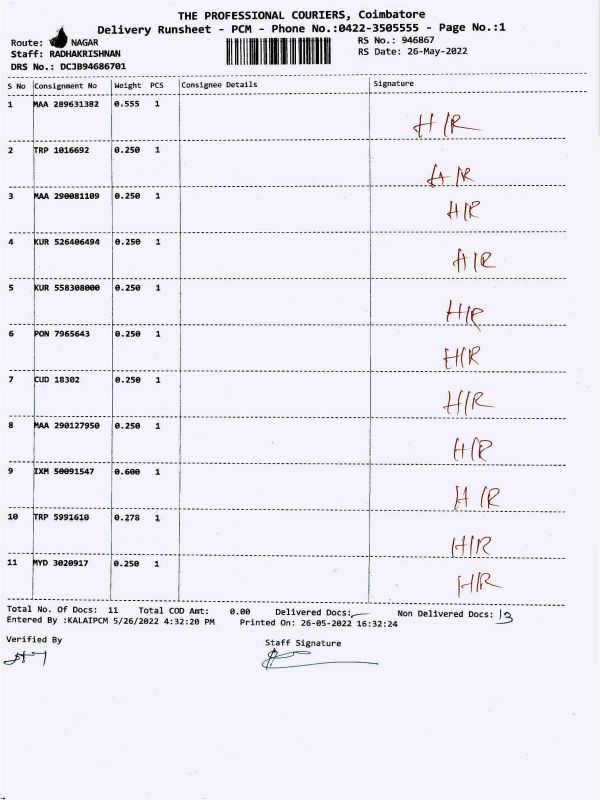 THE PROFESSIONAL COURIERS, Coimbatore
Delivery Runsheet - PCM - Phone No.:0422-3505555 - Page No.:1
Route: NAGAR
RS No.: 946867
Staff: RADHAKRISHNAN
RS Date: 26-May-2022
DRS No.: DCJB94686701
S No Consignment No Weight PCS Consignee Details Signature
1 MAA 289631382 0.555 1 H/R
2 TRP 1016692 0.250 1 H/R
3 MAA 290081109 0.250 1 H/R
4 KUR 526406494 0.250 1 H/R
5 KUR 558308000 0.250 1 H/R
6 PON 7965643 0.250 1 H/R
7 CUD 18302 0.250 1 H/R
8 MAA 290127950 0.250 1 H/R
9 IXM 50091547 0.600 1 H/R
10 TRP 5991610 0.278 1 H/R
11 MYD 3020917 0.250 1 H/R
Total No. Of Docs: 11 Total COD Amt: 0.00 Delivered Docs: Non Delivered Docs: 13
Entered By :KALAIPCM 5/26/2022 4:32:20 PM Printed On: 26-05-2022 16:32:24
Verified By Staff Signature